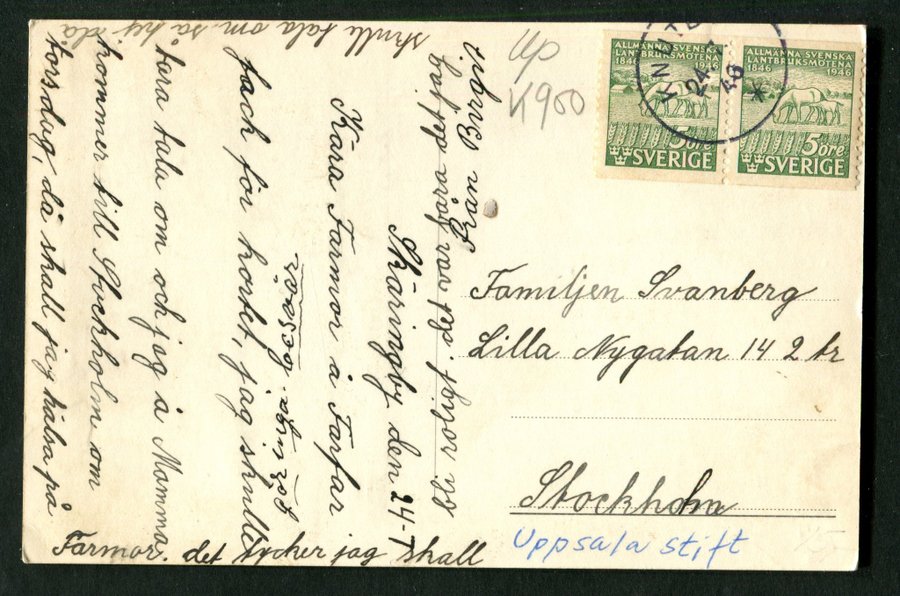 Skäringby den 24-7
Kära Farmor å Farfar
Tack för kortet, jag skulle
bara tala om och jag å Mamma
kommer till Stockholm om
torsdag, då skall jag hälsa på
Farmor. det tycker jag skall
bli roligt. det var bara det jag
skulle tala om så hej då
Från Birgit
Up
K900
ALLMÄNNA SVENSKA
LANTBRUKSMÖTENA
1846 1946
5 ÖRE
SVERIGE
ALLMÄNNA SVENSKA
LANTBRUKSMÖTENA
1846 1946
5 ÖRE
SVERIGE
24
46
Familjen Svanberg
Lilla Nygatan 14 2 tr
Stockholm
Uppsala stift